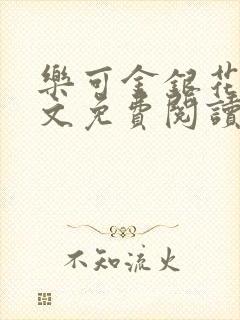 樂可金銀花
文免費閱讀
不知流火